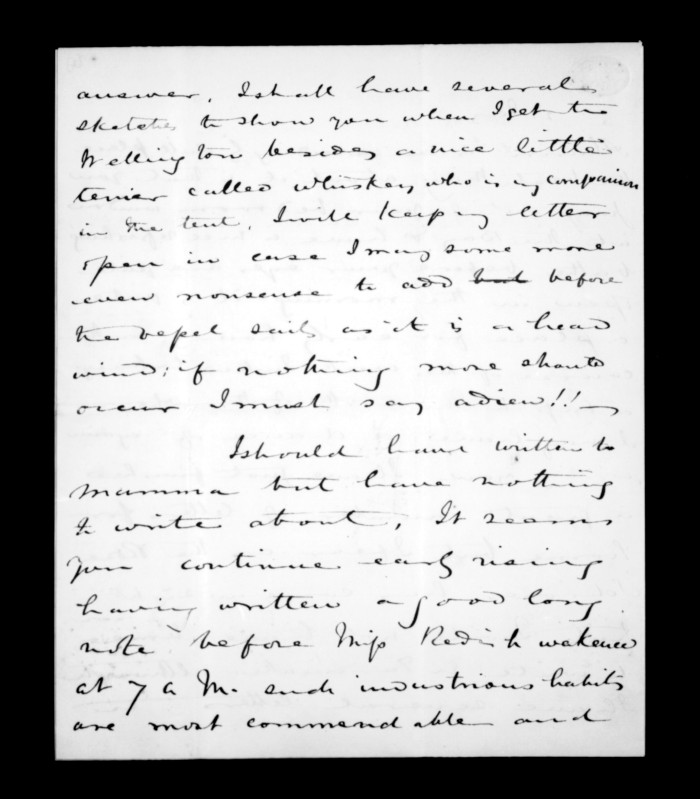 answer. I shall have several
sketches to show you when I get to
Wellington besides a nice little
terrier called Whiskey who is my companion
in the tent. I will keep my letter
open in case I may some more
even nonsense to add but before
the vessel sails as it is a head
wind; if nothing more should
occur I must say adieu!!
I should have written to
Mamma but have nothing
to write about. It seems
you continue early rising
having written a good long
note before Miss Redish wakened
at 7 a M. such industrious habits
are most commendable and